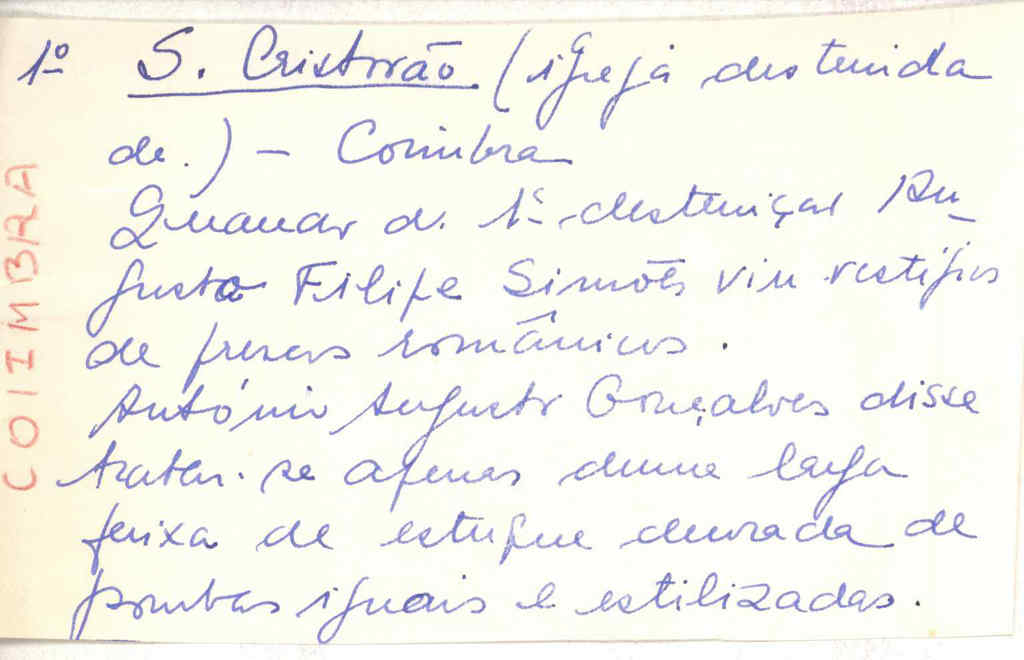 1º S. Cristovão (igreja destruida
de.) – Coimbra
Quando d. 1ª destruição Au-
gusto Filipe Simões viu vestígios
de frescos românicos.
António Augusto Gonçalves disse
tratar-se apenas duma larga
faixa de estuque decorada de
pombas iguais e estilizadas.
COIMBRA